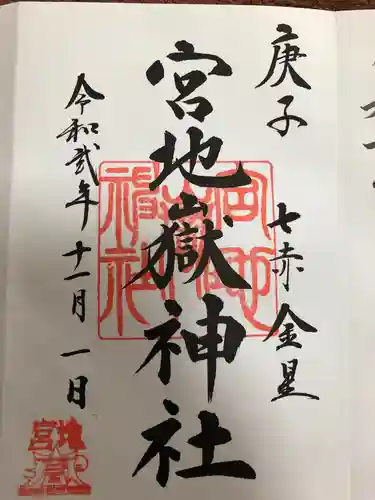 庚子
七赤金星
宮地嶽神社
令和弐年十一月一日
宮地嶽神社